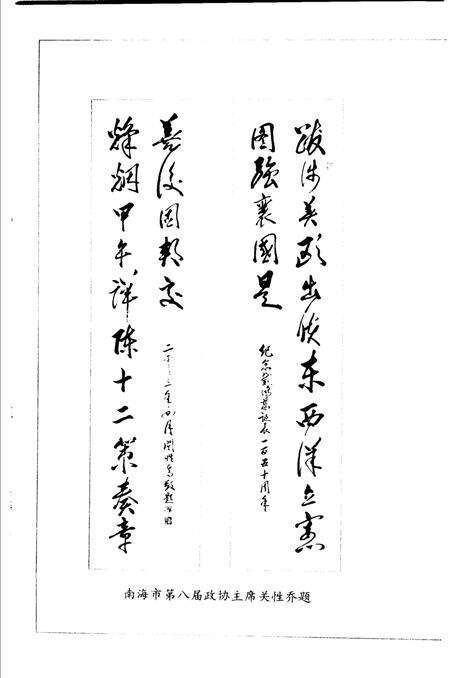 跋涉美歐出使東西洋立憲
图強襄國是
纪念戴鸿慈诞辰一百五十周年
烽烟甲午詳陈十二策奏章
善後固邦交
二〇〇三年四月关性乔敬题
南海市第八届政协主席关性乔题